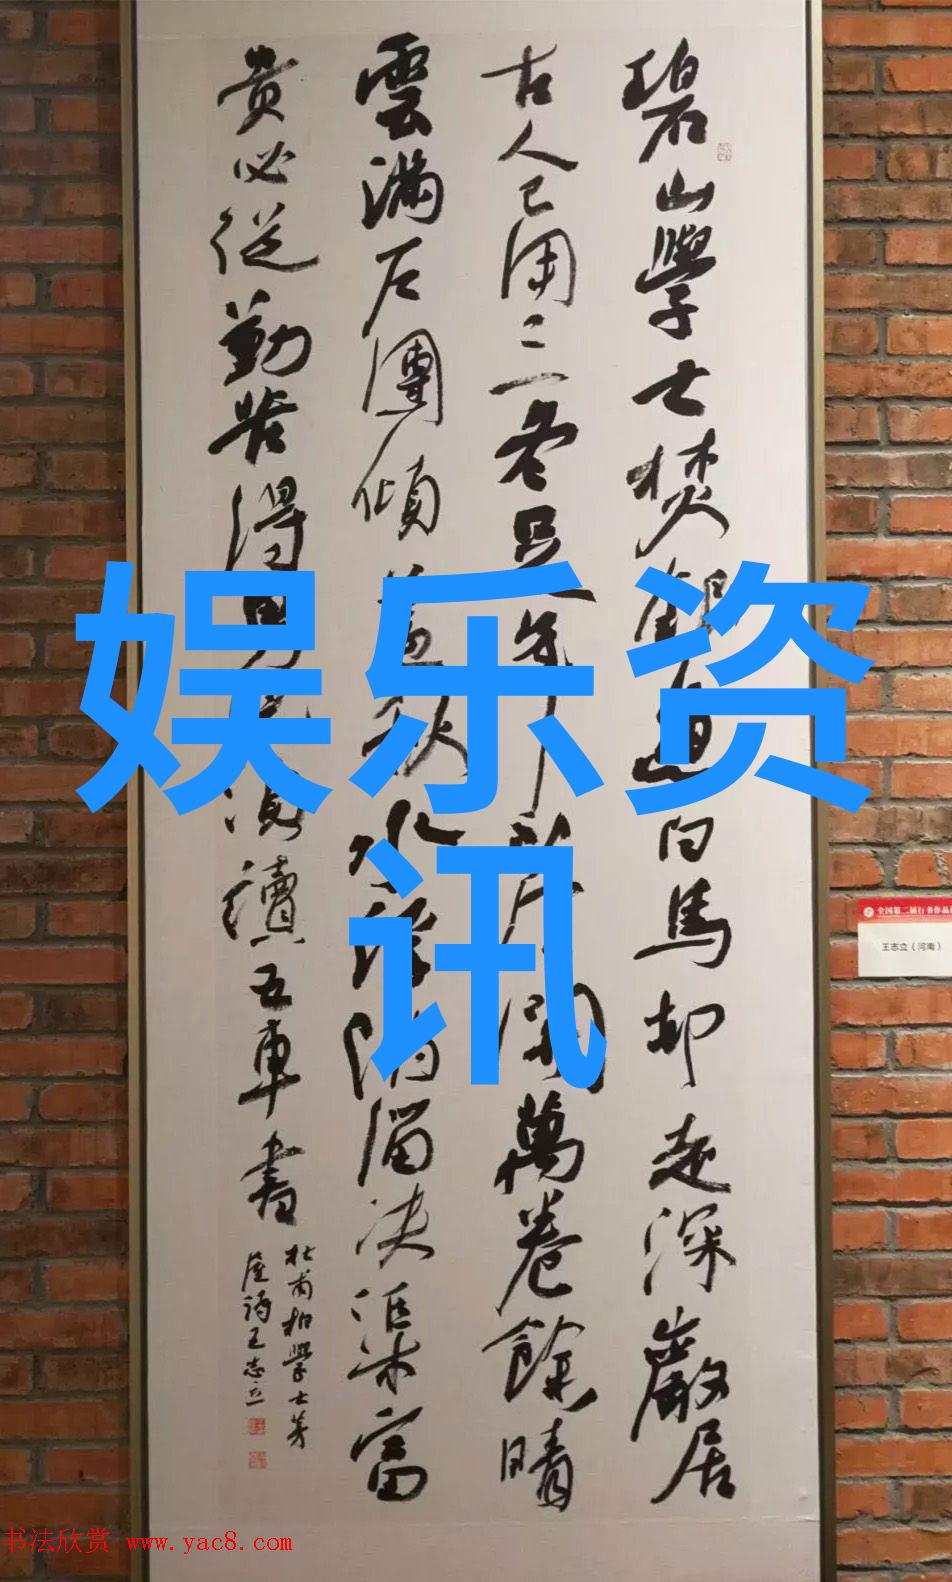 碧山學士焚銀魚白馬却走深巖居
古人已用三冬足年少今開萬卷餘晴
雲滿户團傾蓋秋水浮階溜决渠富
貴必從勤苦得男兒須讀五車書
杜甫柏學士茅
屋詩王志立
娱乐资
讯
全国第二届行书作品展
王志立（河南）
书法欣赏 www.yac8.com